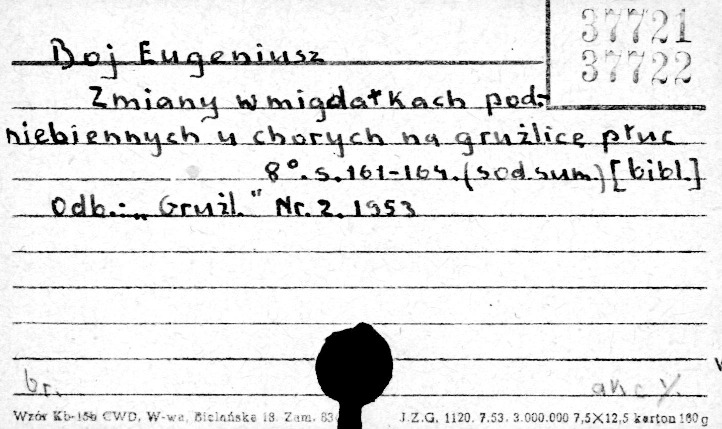 37721
37722
Boj Eugeniusz
Zmiany w migdałkach pod-
niebiennych u chorych na gruźlicę płuc
8°. s. 161-164. (sod sum) [bibl.]
Odb.: „Gruźl." Nr. 2. 1953
br.
akc
Wzór Kb-15b CWD, W-wa, Bielańska 18. Zam. 83
J.Z.G. 1120. 7.53. 3.000.000 7,5×12,5 karton 160 g